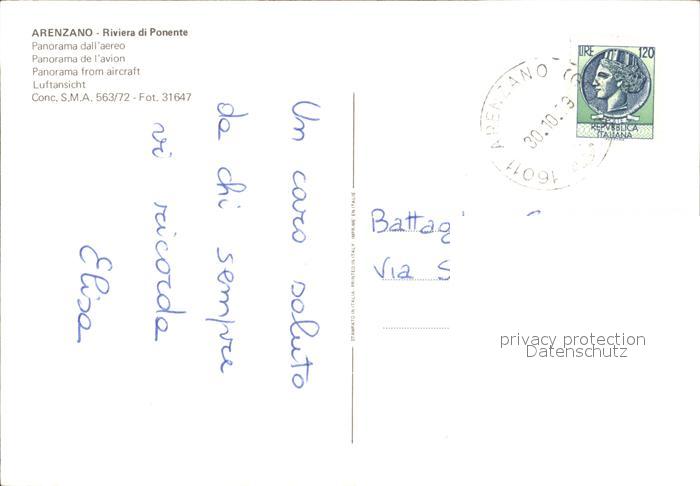 ARENZANO - Riviera di Ponente
Panorama dall'aereo
Panorama de l'avion
Panorama from aircraft
Luftansicht
Conc. S.M.A. 563/72 - Fot. 31647
Un caro saluto
da chi sempre
vi ricorda
Elisa
STAMPATO IN ITALIA - PRINTED IN ITALY IMPRIME EN ITALIE
LIRE 120
REPVBBLICA
ITALIANA
16011 ARENZANO
30.10.
Battag
Via S
privacy protection
Datenschutz